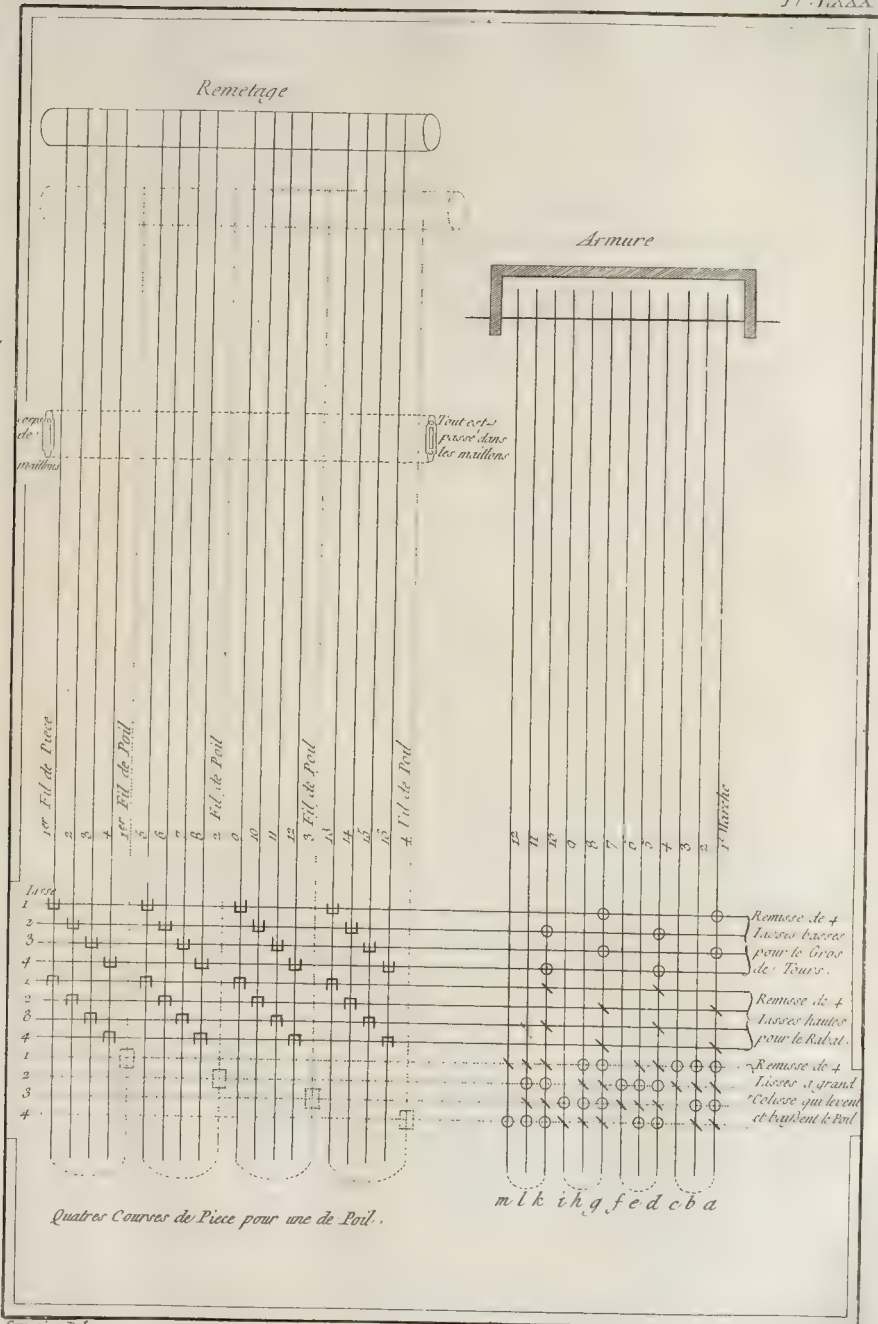 Remetage
Armure
corps
de
maillons
Tout est
passé dans
les maillons
1er Fil de Piece
2
3
4
1er Fil de Poil
5
6
7
8
2 Fil de Poil
9
10
11
12
3 Fil de Poil
13
14
15
16
4 Fil de Poil
12
11
10
9
8
7
6
5
4
3
2
1e Marche
Lisse
1
2
3
4
1
2
3
4
1
2
3
4
Remisse de 4
Lisses basses
pour le Gros
de Tours.
Remisse de 4
Lisses hautes
pour le Rabat.
Remisse de 4
Lisses a grand
Colisse qui levent
et baissent le Poil
m l k i h g f e d c b a
Quatres Courses de Piece pour une de Poil.